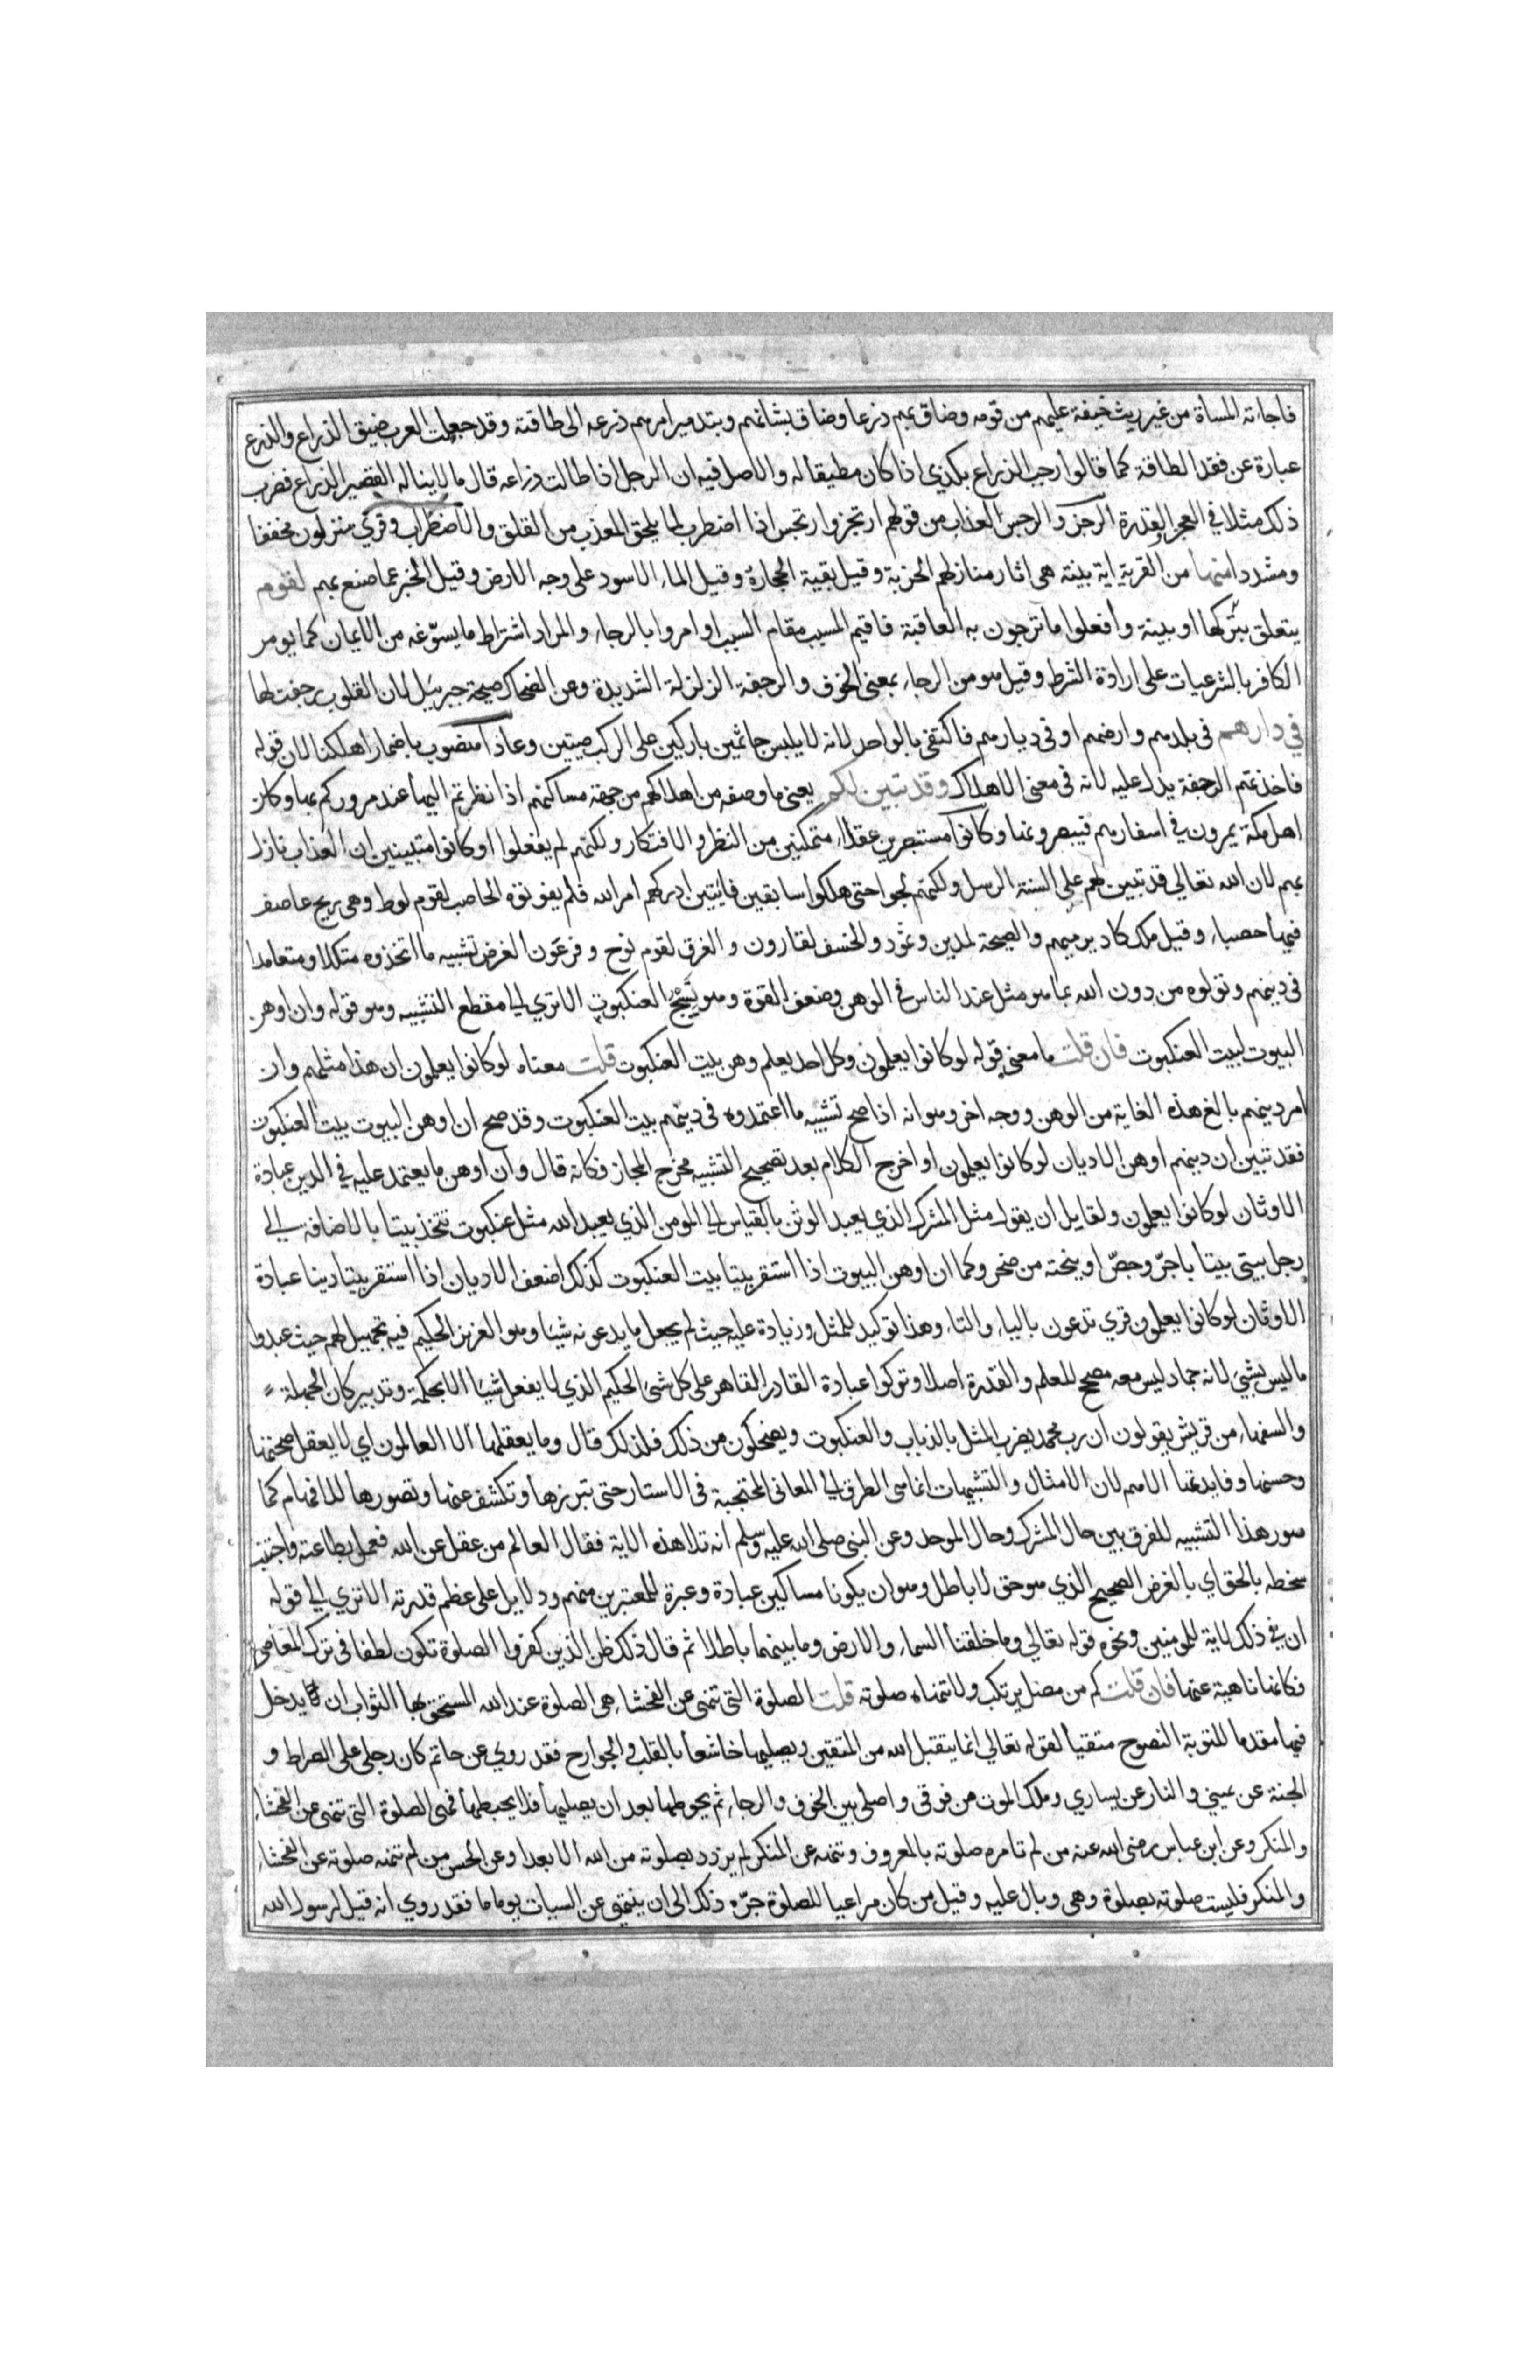 فاجاته المساة من غير ريث خيفة عليهم من قومه وضاق بهم ذرعا وضاق بشانهم وبتدبير امرهم ذرعه الى طاقته وقد جعلت العرب ضيق الذراع والذرع
عبارة عن فقد الطاقة كما قالوا رحب الذراع بكذي اذا كان مطيقا له والاصل فيه ان الرجل اذا طالت ذراعه قال ما لا يناله القصير الذراع فضرب
ذلك مثلا في العجز والقدرة الرجز والرجس العذاب من قولهم ارتجز وارتجس اذا اضطرب لما يلحق المعذب من القلق والاضطراب وقري منزلون مخففا
ومشددا منها من القرية اية بينة هى اثار منازلهم الخربة وقيل بقية الحجارة وقيل الماء الاسود على وجه الارض وقيل الخبر عما صنع بهم لقوم
يتعلق بتركها او بينة وافعلوا ما ترجون به العاقبة فاقيم المسبب مقام السبب او امروا بالرجاء والمراد اشتراط ما يسوغه من الايمان كما يومر
الكافر بالشرعيات على ارادة الشرط وقيل هو من الرجاء بمعنى الخوف والرجفة الزلزلة الشديدة وعن الضحاك صيحة جبريل لان القلوب رجفت لها
في دارهم فى بلدهم وارضهم او فى ديارهم فاكتفى بالواحد لانه لا يلبس جاثمين باركين على الركب ميتين وعادا منصوب باضمار اهلكنا لان قوله
فاخذتهم الرجفة يدل عليه لانه فى معنى الاهلاك وقد تبين لكم يعنى ما وصفه من اهلاكهم من جهة مساكنهم اذا نظرتم اليها عند مروركم بها وكان
اهل مكة يمرون في اسفارهم فيبصرونها وكانوا مستبصرين عقلاء متمكنين من النظر والافتكار ولكنهم لم يفعلوا او كانوا متبينين ان العذاب نازل
بهم لان الله تعالى قد تبين لهم على السنة الرسل ولكنهم لجوا حتى هلكوا سابقين فايتين ادركهم امر الله فلم يفوتوه الحاصب لقوم لوط وهى ريح عاصف
فيها حصباء وقيل ملك كان يرميهم والصيحة لمدين وثمود والخسف لقارون والغرق لقوم نوح وفرعون الغرض تشبيه ما اتخذوه متكلا ومتعامدا
فى دينهم وتولوه من دون الله بما هو مثل عند الناس في الوهن وضعف القوة وهو نسج العنكبوت الاتري الى مقطع التشبيه وهو قوله وان اوهن
البيوت لبيت العنكبوت فان قلت ما معنى قوله لو كانوا يعلمون وكل احد يعلم وهن بيت العنكبوت قلت معناه لو كانوا يعلمون ان هذا مثلهم وان
امر دينهم بالغ هذه الغاية من الوهن ووجه اخر وهو انه اذا صح تشبيه ما اعتمدوه فى دينهم ببيت العنكبوت وقد صح ان اوهن البيوت بيت العنكبوت
فقد تبين ان دينهم اوهن الاديان لو كانوا يعلمون او اخرج الكلام بعد تصحيح التشبيه مخرج المجاز فكانه قال وان اوهن ما يعتمد عليه في الدين عبادة
الاوثان لو كانوا يعلمون ولقايل ان يقول مثل المشرك الذي يعبد الوثن بالقياس الى المومن الذي يعبد الله مثل عنكبوت تتخذ بيتا بالاضافة الى
رجل يبنى بيتا باجر وجص او ينحته من صخر وكما ان اوهن البيوت اذا استقريتها بيتا بيت العنكبوت كذلك اضعف الاديان اذا استقريتها دينا عبادة
الاوثان لو كانوا يعلمون قري تدعون بالياء والتاء وهذا توكيد للمثل وزيادة عليه حيث لم يجعل ما يدعونه شيئا وهو العزيز الحكيم فيه تجهيل لهم حيث عبدوا
ما ليس بشيئ لانه جماد ليس معه مصحح للعلم والقدرة اصلا وتركوا عبادة القادر القاهر على كل شئ الحكيم الذي لا يفعل شيئا الا بحكمة وتدبير كان الجهلة
والسفهاء من قريش يقولون ان رب محمد يضرب المثل بالذباب والعنكبوت ويضحكون من ذلك فلذلك قال وما يعقلها الا العالمون اي لا يعقل صحتها
وحسنها وفايدتها الاهم لان الامثال والتشبيهات انما هى الطرق الى المعانى المحتجبة فى الاستار حتى تبرزها وتكشف عنها وتصورها للافهام كما
صور هذا التشبيه للفرق بين حال المشرك وحال الموحد وعن النبى صلى الله عليه وسلم انه تلا هذه الاية فقال العالم من عقل عن الله فعمل بطاعته واجتنب
سخطه بالحق اي بالغرض الصحيح الذي هو حق لا باطل وهو ان يكونا مساكن عبادة وعبرة للمعتبرين منهم ودلايل على عظم قدرته الاتري الى قوله
ان في ذلك لاية للمومنين ونحوه قوله تعالى وما خلقنا السماء والارض وما بينهما باطلا ثم قال ذلك ظن الذين كفروا الصلوة تكون لطفا فى ترك المعاصى
فكانها ناهية عنها فان قلت كم من مصل يرتكب ولا تنهاه صلوته قلت الصلوة التى تنهى عن الفحشاء هى الصلوة عند الله المستحق بها الثواب ان يدخل
فيها مقدما للتوبة النصوح متقيا لقوله تعالى انما يتقبل الله من المتقين ويصليها خاشعا بالقلب والجوارح فقد روي عن حاتم كان رجلى على الصراط و
الجنة عن يمينى والنار عن يساري وملك الموت من فوقى واصلى بين الخوف والرجاء ثم يحوطها بعد ان يصليها فلا يحبطها فهى الصلوة التى تنهى عن الفحشاء
والمنكر وعن ابن عباس رضى الله عنه من لم تامره صلوته بالمعروف وتنهه عن المنكر لم يزدد بصلوته من الله الا بعدا وعن الحسن من لم تنهه صلوته عن الفحشاء
والمنكر فليست صلوته بصلوة وهى وبال عليه وقيل من كان مراعيا للصلوة جره ذلك الى ان ينتهى عن السيات يوما ما فقد روي انه قيل لرسول الله